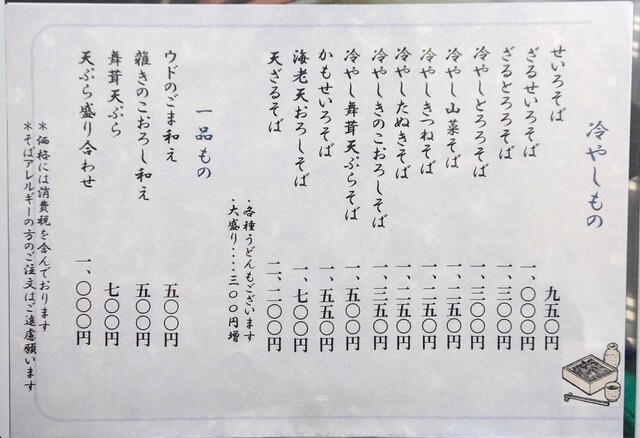 冷やしもの
せいろそば 九五〇円
ざるせいろそば 一、〇〇〇円
ざるとろろそば 一、三〇〇円
冷やしとろろそば 一、三〇〇円
冷やし山菜そば 一、二五〇円
冷やしきつねそば 一、二五〇円
冷やしたぬきそば 一、二五〇円
冷やしきのこおろしそば 一、三五〇円
冷やし舞茸天ぷらそば 一、五〇〇円
かもせいろそば 一、五五〇円
海老天おろしそば 一、七〇〇円
天ざるそば 二、二〇〇円
・各種うどんもございます
・大盛り‥‥三〇〇円増
一品もの
ウドのごま和え 五〇〇円
雑きのこおろし和え 五〇〇円
舞茸天ぷら 七〇〇円
天ぷら盛り合わせ 一、〇〇〇円
*価格には消費税を含んでおります
*そばアレルギーの方のご注文はご遠慮願います